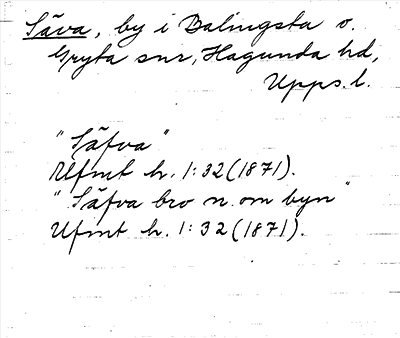 Säva, by i Balingsta o.
Gryta snr, Hagunda hd,
Upps. l.
"Säfva"
Ufmt h. 1:32 (1871).
"Säfva bro n. om byn"
Ufmt h. 1:32 (1871).